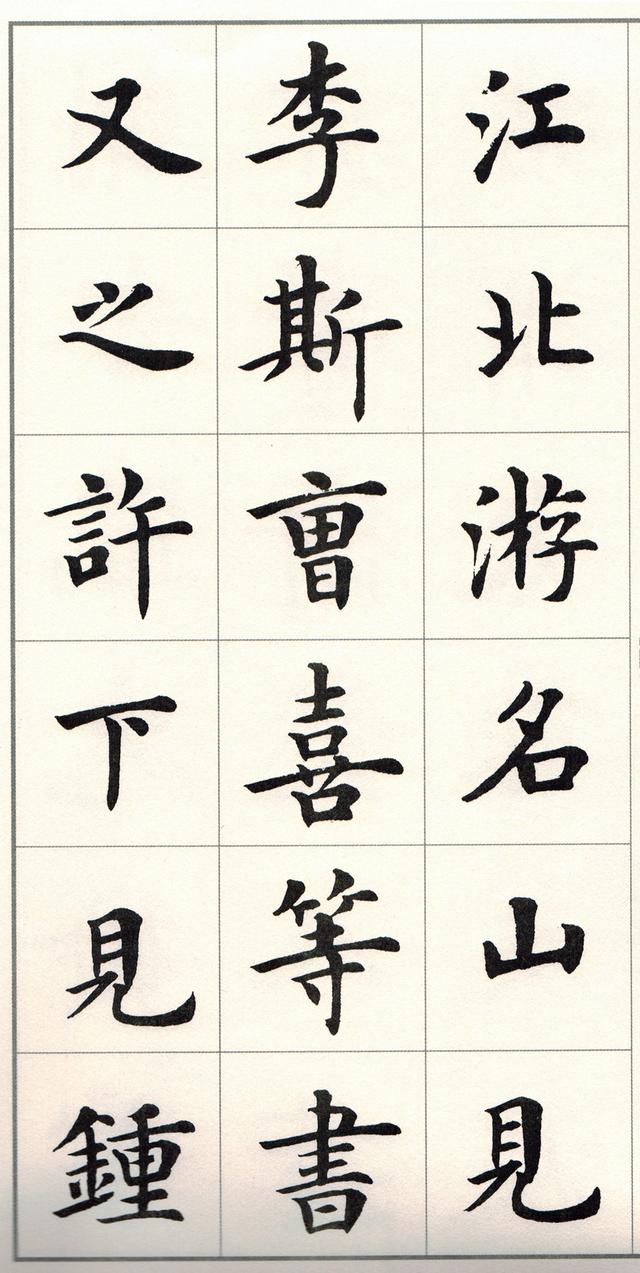 江北游名山見
李斯曺喜等書
又之許下見鍾